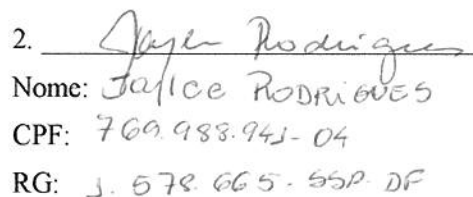 2. Jayce Rodrigues
Nome: Jayce RODRIGUES
CPF: 769.988.941-04
RG: 1.578.665-SSP.DF